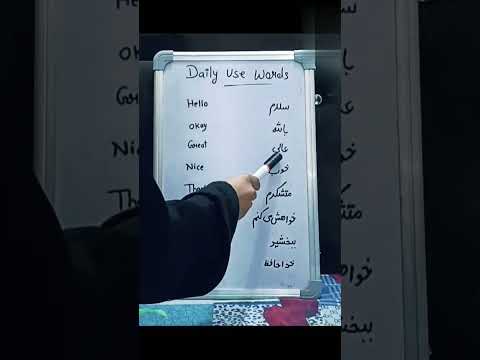 Daily Use Words
Hello سلام
Okay باشه
Great عالی
Nice خوب
متشکرم
خواهش می کنم
ببخشید
خداحافظ